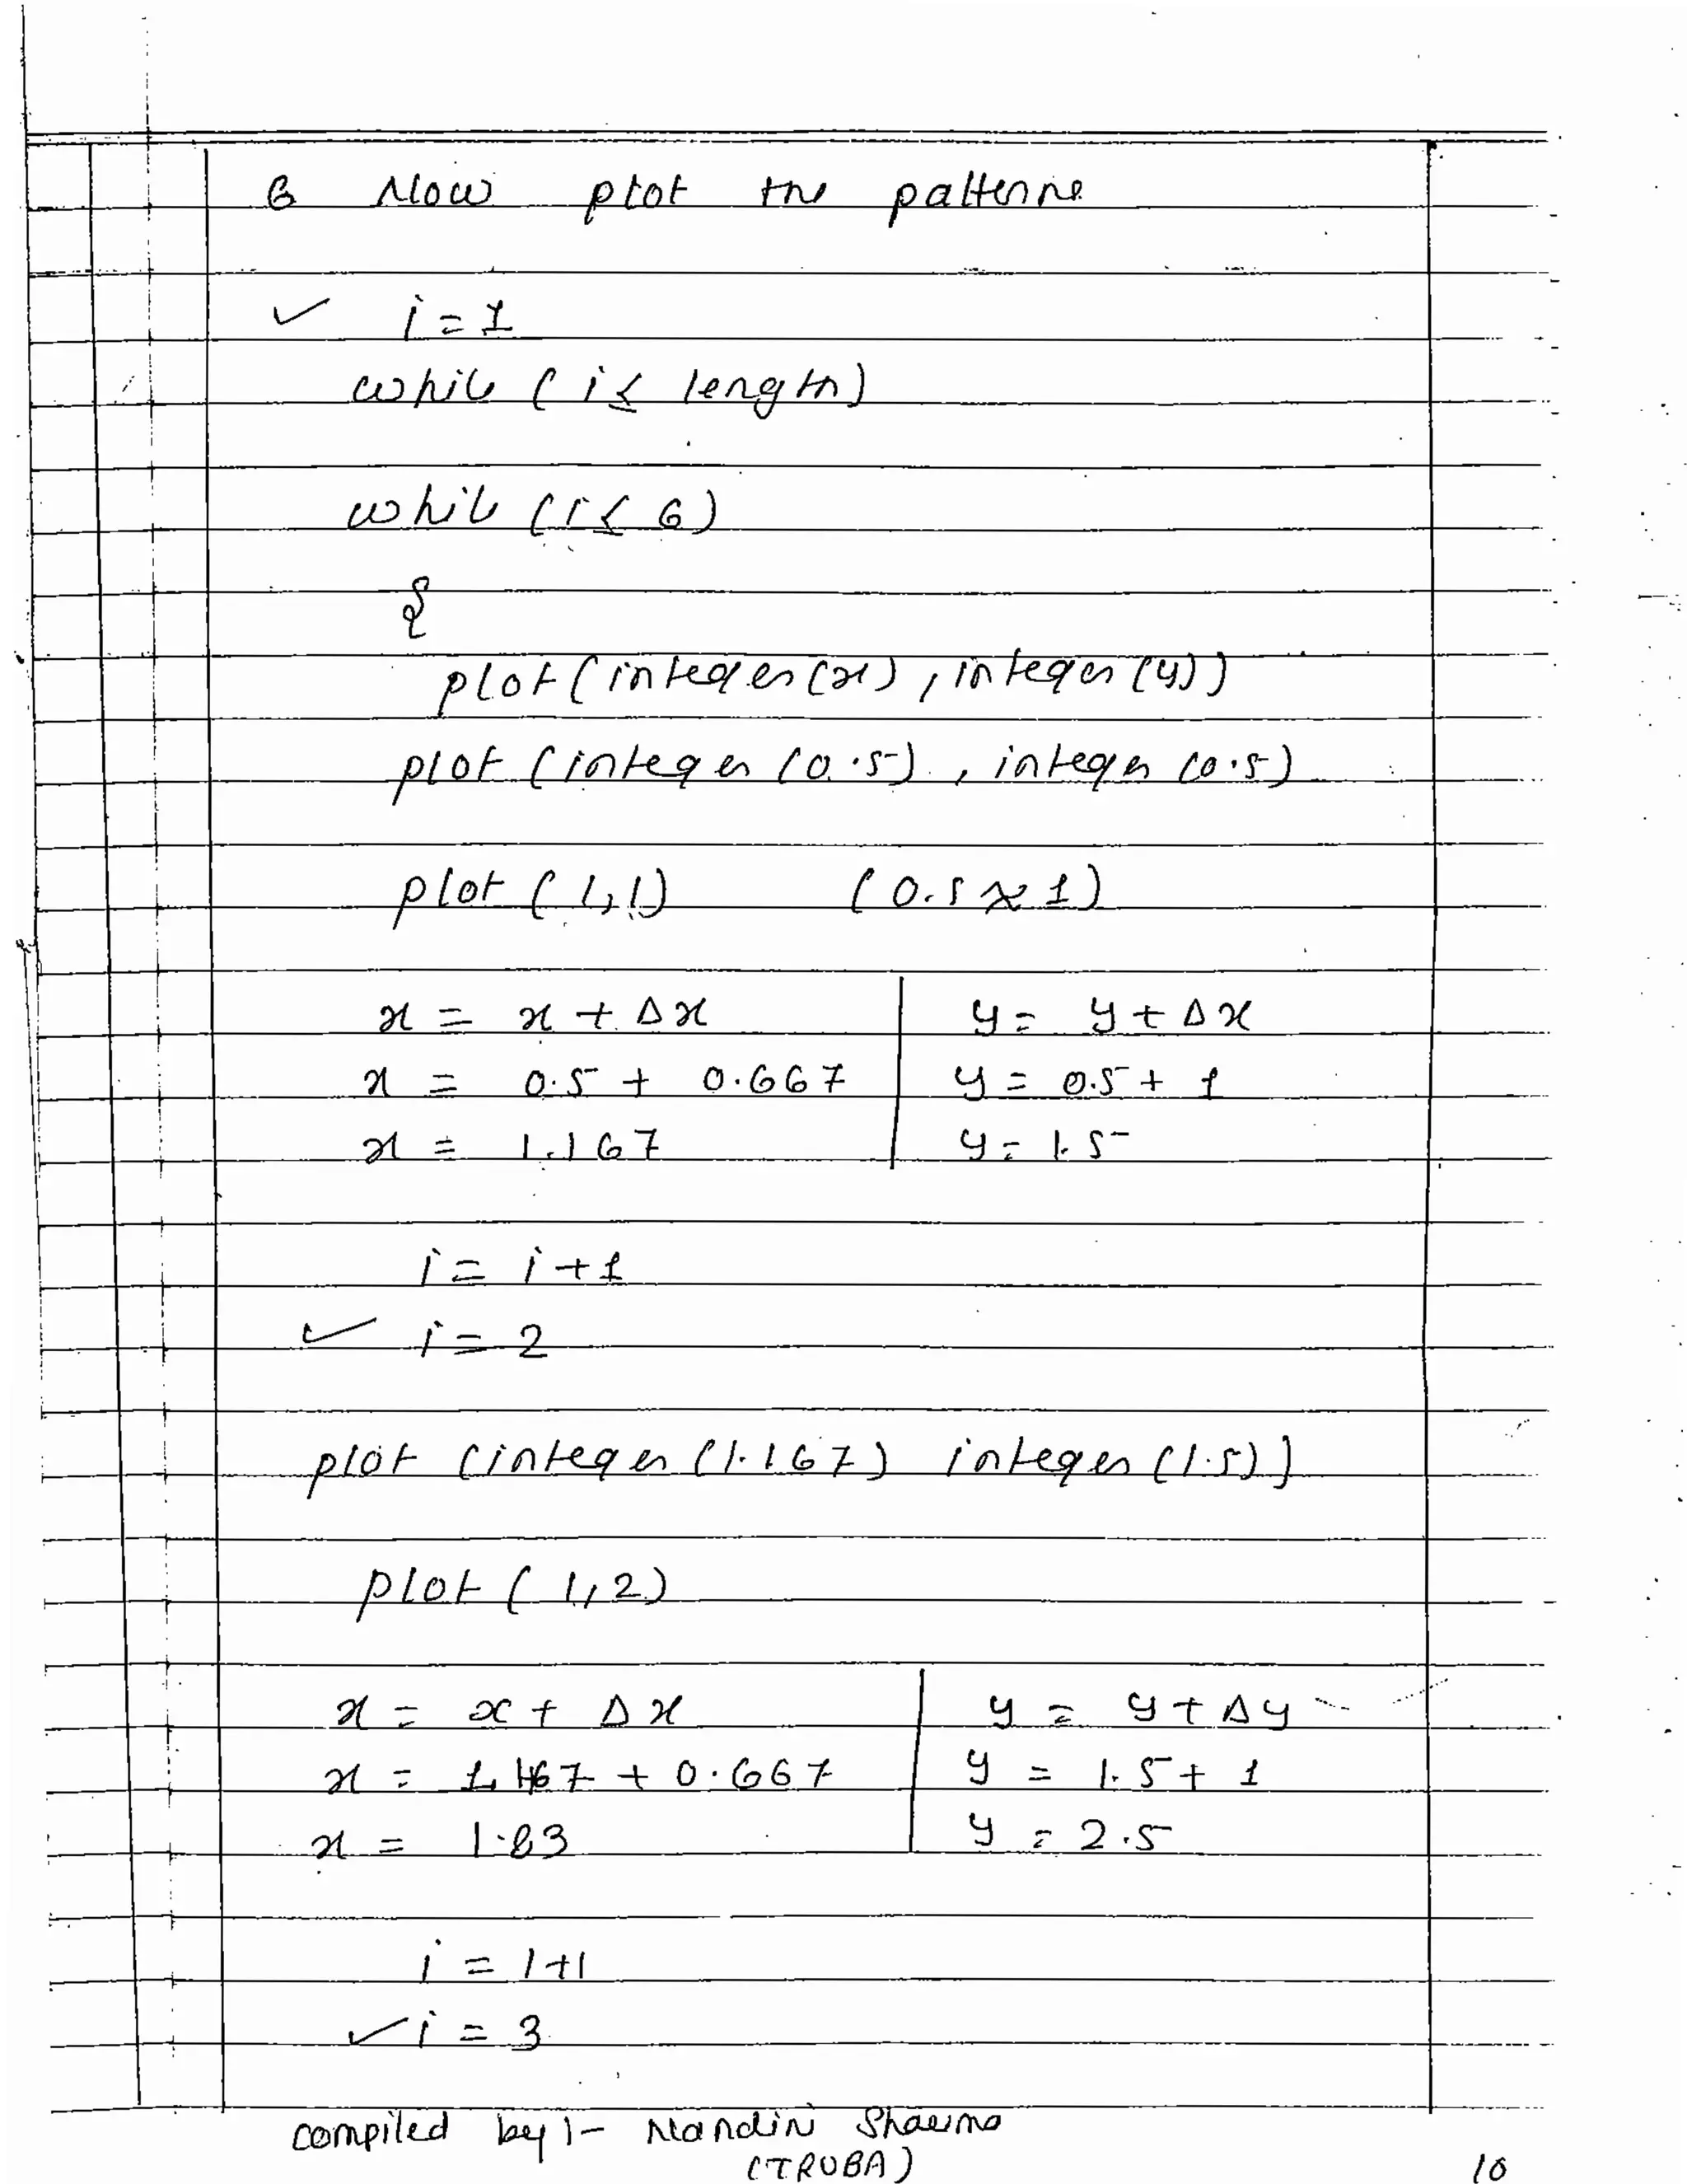 6 Now plot the patterne
✓ i = 1
while ( i ≤ length)
while (i ≤ 6)
{
plot ( integer (x) , integer (y))
plot (integer (0.5) , integer (0.5)
plot ( 1,1) ( 0.5 ≈ 1)
x = x + Δx y = y + Δx
x = 0.5 + 0.667 y = 0.5 + 1
x = 1.167 y = 1.5
i = i + 1
✓ i = 2
plot (integer (1.167) integer (1.5))
plot ( 1,2)
x = x + Δx y = y + Δy
x = 1.167 + 0.667 y = 1.5 + 1
x = 1.83 y = 2.5
i = 1+1
✓ i = 3
compiled by :- Nandini Sharma
(TRUBA)
10